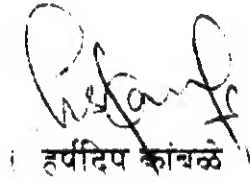 ( हर्षदिप कांबळे )